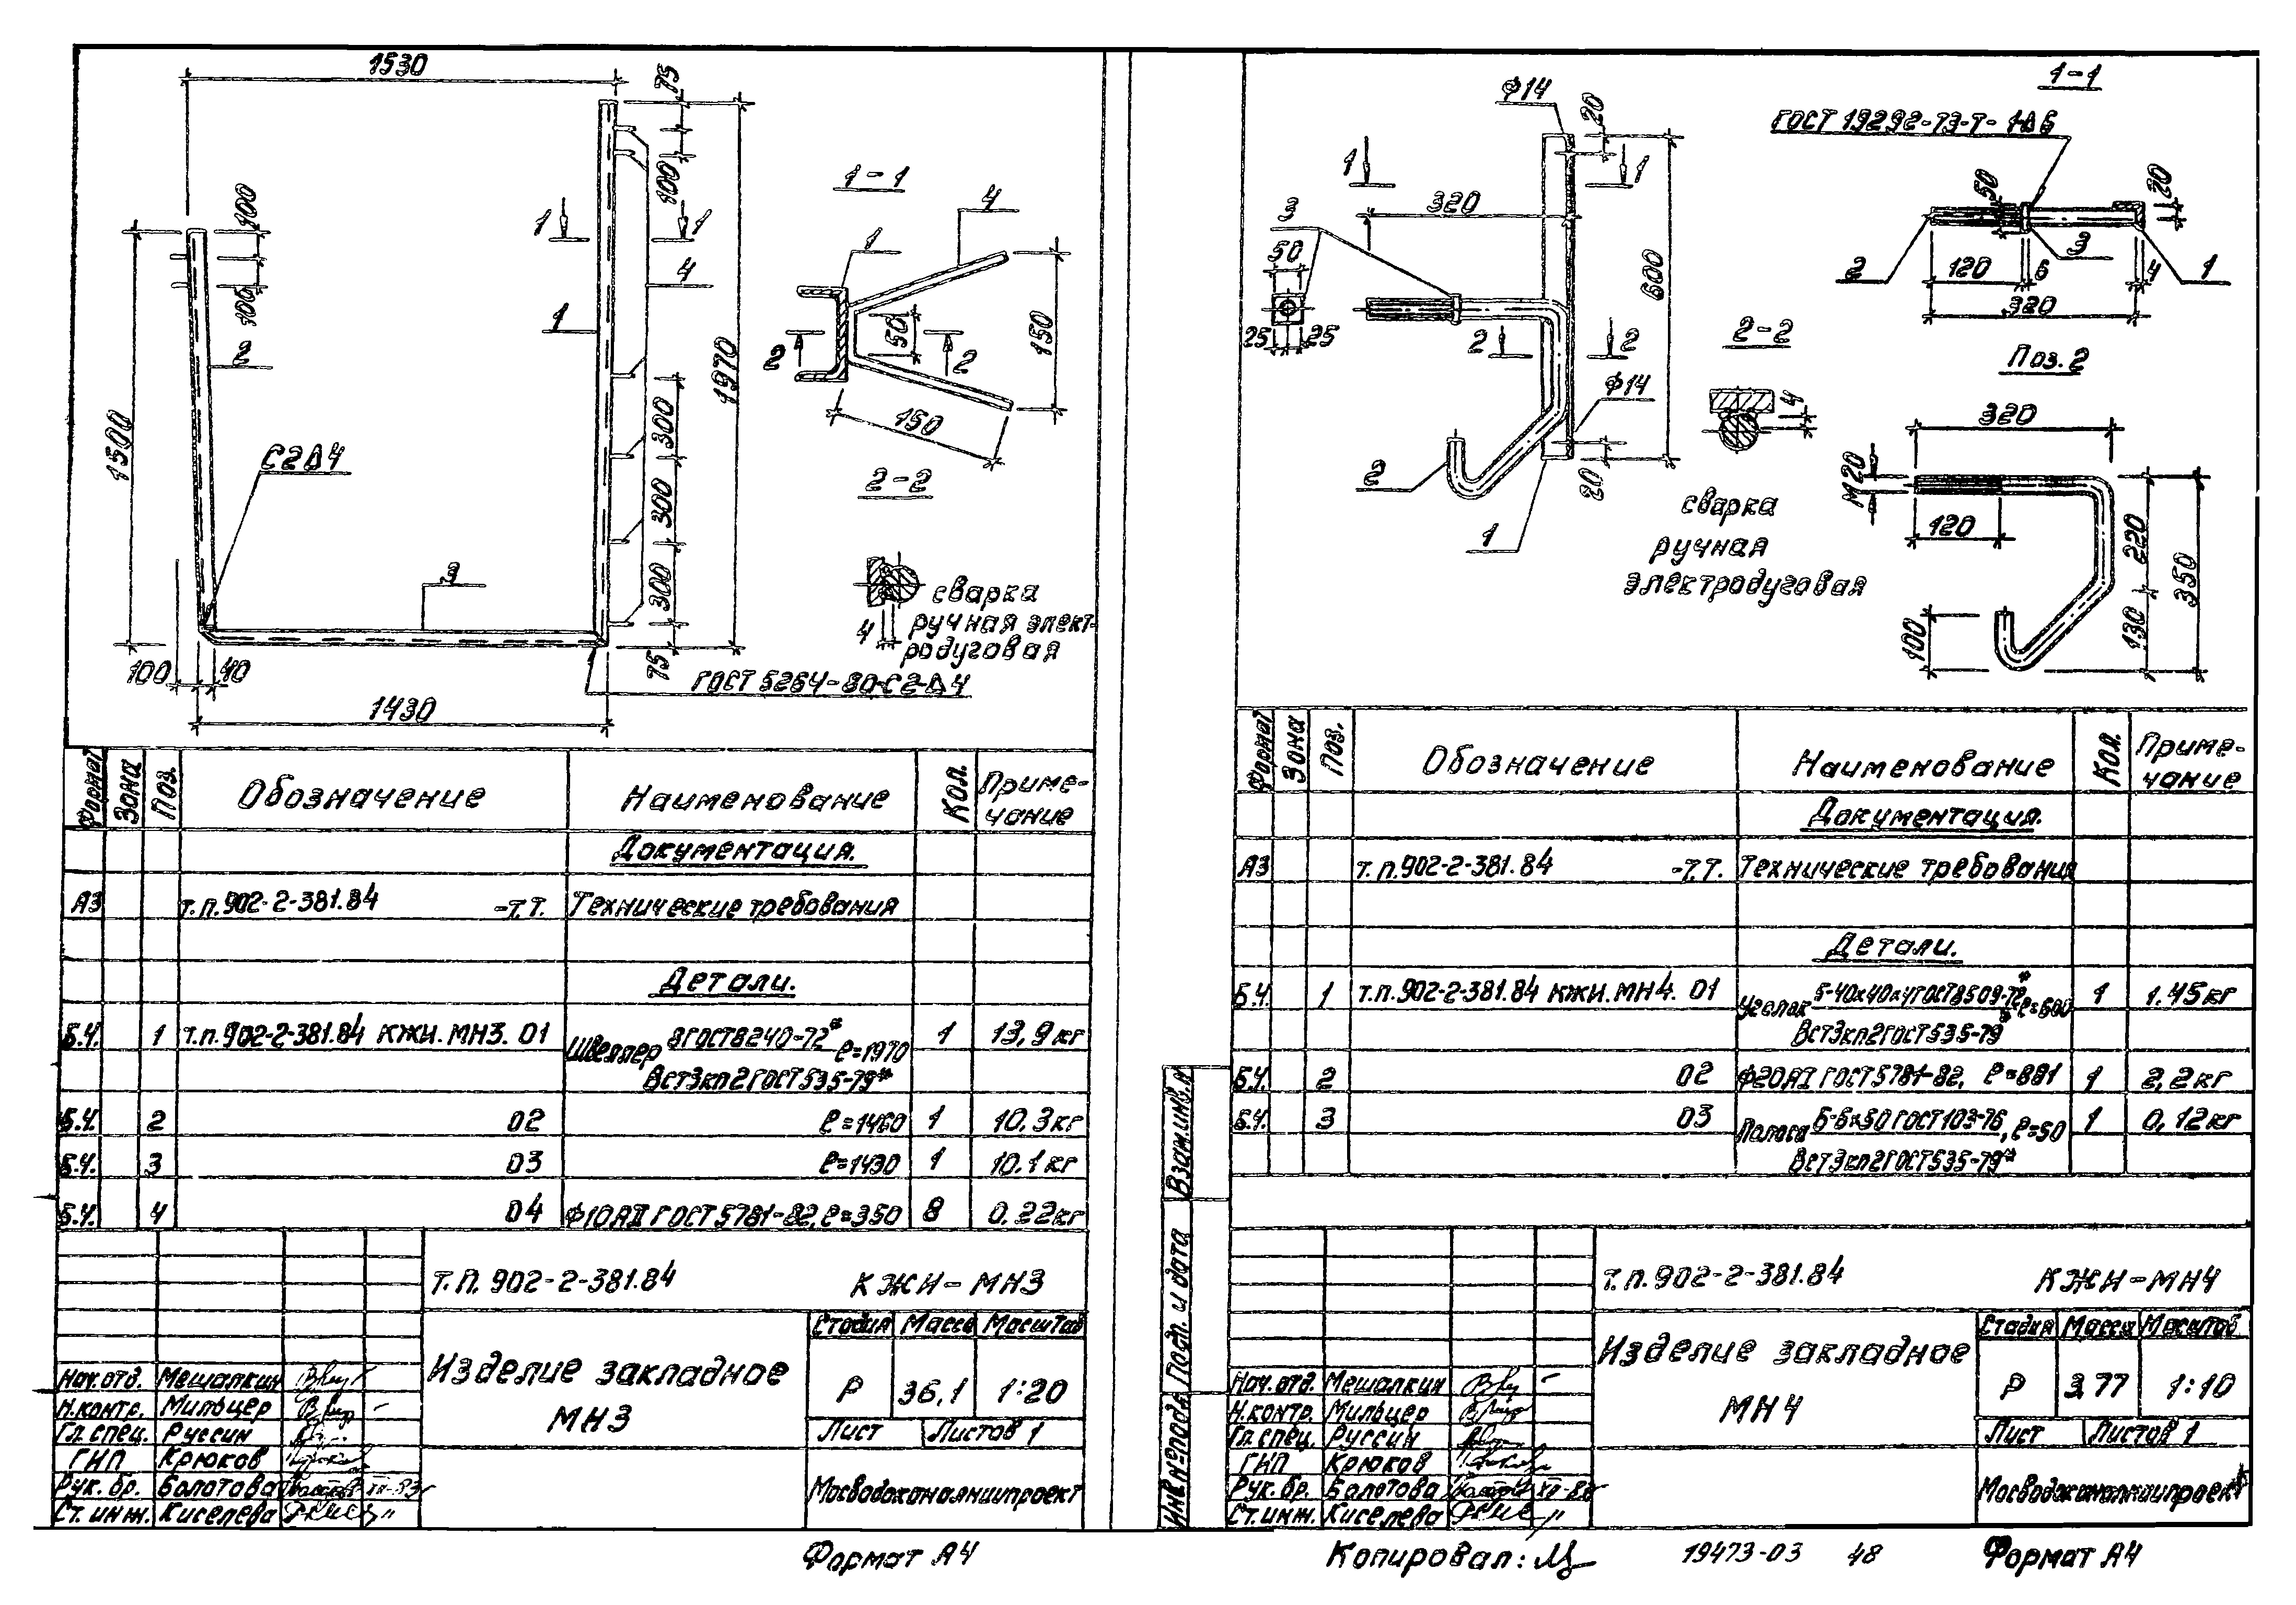 1530
75
1970
100
100
100
1500
1
1
1
2
4
1-1
4
1
150
50
2
2
150
С2Δ4
300
300
300
75
2-2
4
сварка
ручная элект-
родуговая
3
100
40
1430
ГОСТ 5264-80-С2-Δ4
Формат
Зона
Поз.
Обозначение
Наименование
Кол.
Приме-
чание
Документация.
А3 т.п.902-2-381.84 -Т.Т. Технические требования
Детали.
Б.Ч. 1 т.п.902-2-381.84 КЖИ.МН3. 01 Швеллер 8ГОСТ8240-72* ℓ=1970 1 13,9кг
ВСт3кп2ГОСТ535-79*
Б.Ч. 2 02 ℓ=1460 1 10,3кг
Б.Ч. 3 03 ℓ=1430 1 10.1кг
Б.Ч. 4 04 Ф10АII ГОСТ5781-82, ℓ=350 8 0.22кг
Т.П. 902-2-381.84 КЖИ-МН3
Изделие закладное
МН3
Стадия Масса Масштаб
Р 36,1 1:20
Лист Листов 1
Мосводоканалниипроект
Нач.отд. Мешалкин
Н.контр. Мильцер
Гл.спец. Руссин
ГИП Крюков
Рук. бр. Болотова
Ст. инж. Киселева
Формат А4
Ф14
20
1
1
320
3
50
25
25
600
2
2
Ф14
2
20
1
1-1
ГОСТ 19292-73-Т-1-Δ6
50
20
2
120
6
3
4
1
320
2-2
4
сварка
ручная
электродуговая
Поз. 2
320
М20
120
220
350
130
100
Формат
Зона
Поз.
Обозначение
Наименование
Кол.
Приме-
чание
Документация.
А3 т.п.902-2-381.84 -Т.Т. Технические требования
Детали.
Б.Ч. 1 т.п.902-2-381.84 КЖИ.МН4. 01 Уголок Б-40х40х4ГОСТ8509-72* ℓ=600 1 1.45кг
ВСт3кп2ГОСТ535-79*
Б.Ч. 2 02 Ф20АI ГОСТ5781-82, ℓ=881 1 2,2кг
Б.Ч. 3 03 Полоса Б-6х50 ГОСТ103-76, ℓ=50 1 0,12кг
ВСт3кп2ГОСТ535-79*
Взам.инв.№
Подп. и дата
Инв.№подл.
т.п.902-2-381.84 КЖИ-МН4
Изделие закладное
МН4
Стадия Масса Масштаб
Р 3,77 1:10
Лист Листов 1
Мосводоканалниипроект
Нач.отд. Мешалкин
Н.контр. Мильцер
Гл.спец. Руссин
ГИП Крюков
Рук. бр. Болотова
Ст.инж. Киселева
Копировал:
19473-03 48
Формат А4